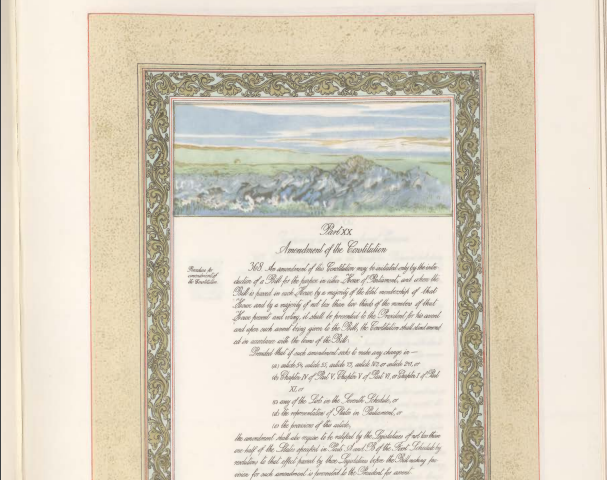 Part XX
Amendment of the Constitution
Procedure for
amendment of
the Constitution.
368. An amendment of this Constitution may be initiated only by the intro-
duction of a Bill for the purpose in either House of Parliament, and when the
Bill is passed in each House by a majority of the total membership of that
House and by a majority of not less than two thirds of the members of that
House present and voting, it shall be presented to the President for his assent
and upon such assent being given to the Bill, the Constitution shall stand amend
ed in accordance with the terms of the Bill:
Provided that if such amendment seeks to make any change in —
(a) article 54, article 55, article 73, article 162 or article 241, or
(b) Chapter IV of Part V, Chapter V of Part VI, or Chapter I of Part
XI, or
(c) any of the Lists in the Seventh Schedule, or
(d) the representation of States in Parliament, or
(e) the provisions of this article,
the amendment shall also require to be ratified by the Legislatures of not less than
one half of the States specified in Parts A and B of the First Schedule by
resolutions to that effect passed by those Legislatures before the Bill making pro-
vision for such amendment is presented to the President for assent.